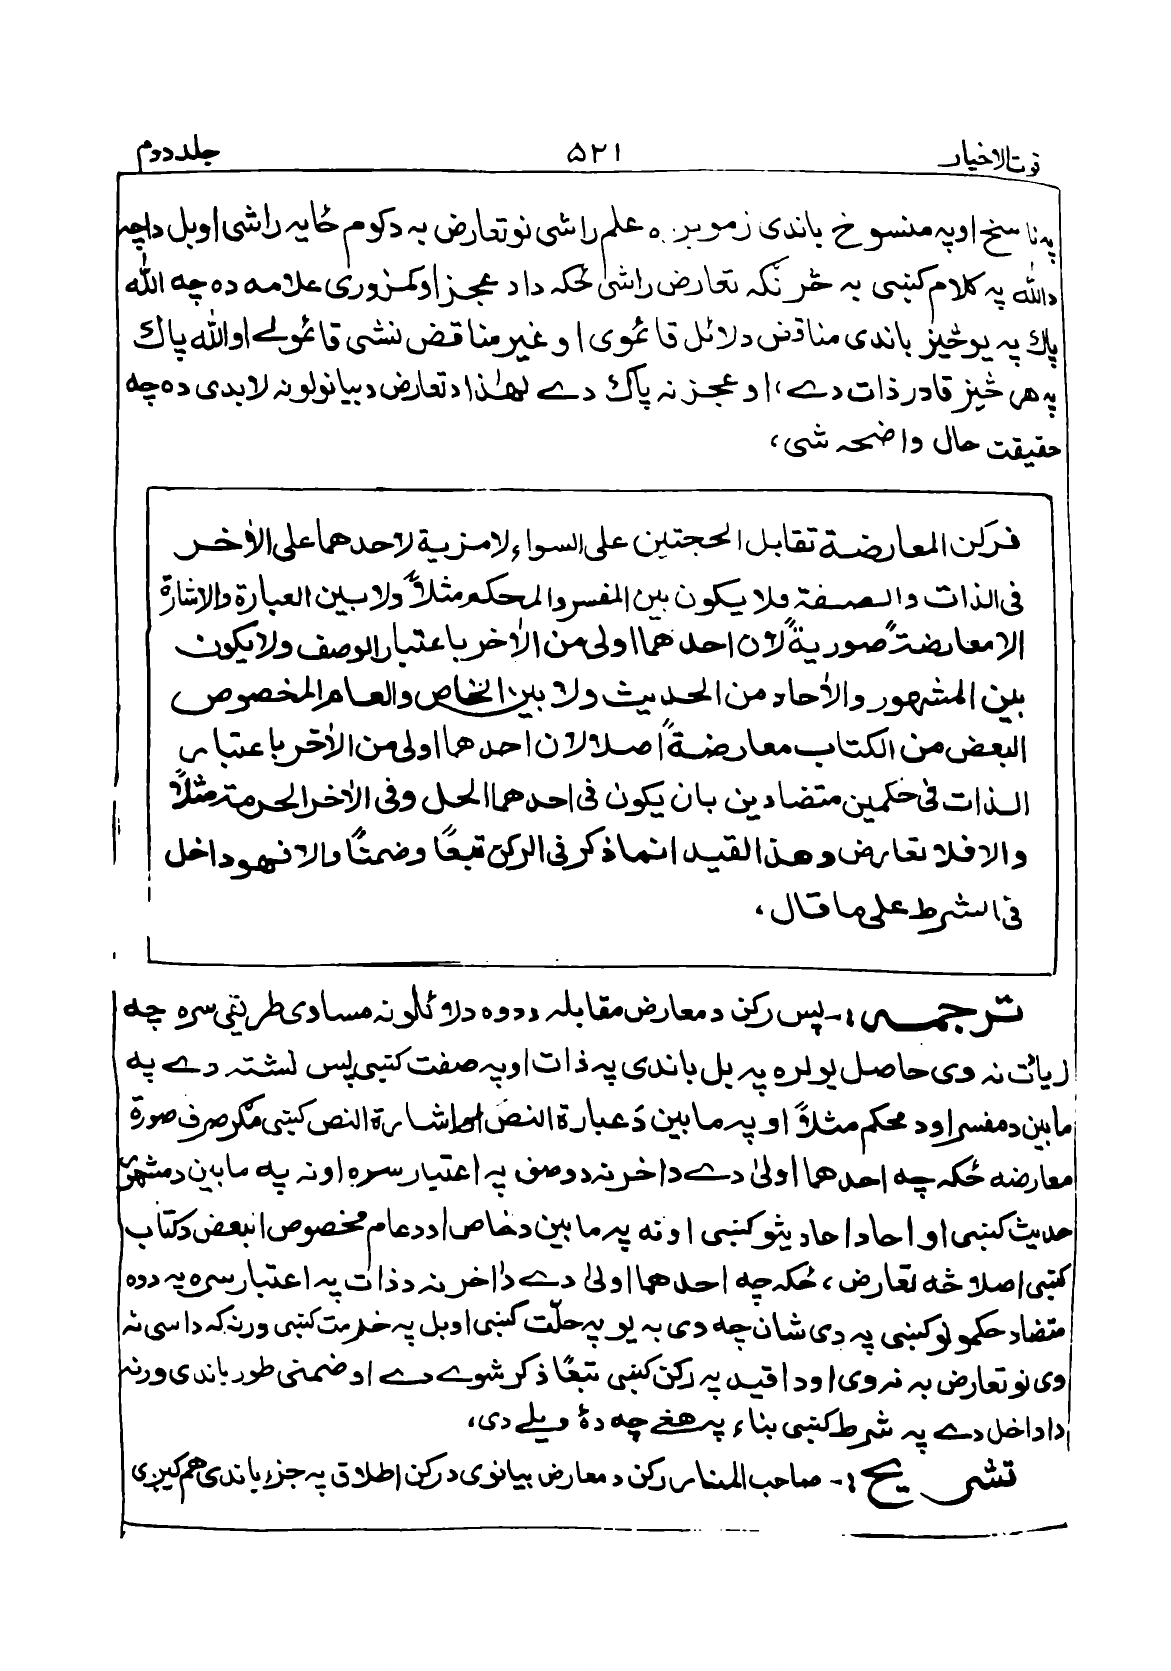 قوت الاخیار ۵۲۱ جلد دوم
په ناسخ او په منسوخ باندی زمونږه علم راشی نو تعارض به د کوم ځایه راشی او بل داچه
دالله په کلام کښی به څرنګه تعارض راشی ځکه دا د عجز او کمزوری علامه ده چه الله
پاك په یو څیز باندی مناقض دلائل قائموی او غیر مناقض نشی قائمولے او الله پاك
په هر څیز قادر ذات دے، او عجز نه پاك دے لهٰذا د تعارض د بیانولو نه لابدی ده چه
حقیقت حال واضحه شی،
فركن المعارضة تقابل الحجتين على السواء لامزية لاحدهما على الأخر
فى الذات والصفة فلا يكون بين المفسر والمحكم مثلاً ولا بين العبارة والاشارة
الا معارضة صورية لان احدهما اولى من الأخر باعتبار الوصف ولا يكون
بين المشهور والأحاد من الحديث ولا بين الخاص والعام المخصوص
البعض من الكتاب معارضة اصلا لان احدهما اولى من الأخر باعتبار
الذات فى حكمين متضادين بان يكون فى احدهما الحل وفى الأخر الحرمة مثلاً
والا فلا تعارض وهذا القيد انما ذكر فى الركن تبعًا وضمنًا والا فهو داخل
فى الشرط على ما قال،
ترجمه :- پس رکن د معارض مقابله د دوه دلائلو نه مساوی طریقی سره چه
زیات نه وی حاصل یو لره په بل باندی په ذات او په صفت کښی پس نشته دے په
مابین د مفسر او د محکم مثلاً او په مابین د عبارة النص او اشارة النص کښی مګر صرف صورة
معارضه ځکه چه احدهما اولیٰ دے د اخر نه د وصف په اعتبار سره او نه په مابین د مشهور
حدیث کښی او احاد احادیثو کښی او نه په مابین د خاص او د عام مخصوص البعض د کتاب
کښی اصلا څه تعارض، ځکه چه احدهما اولیٰ دے د اخر نه د ذات په اعتبار سره په دوه
متضاد حکمونو کښی په دی شان چه وی به یو په حلّت کښی او بل په حرمت کښی ورنه که داسی نه
وی نو تعارض به نه وی او دا قید په رکن کښی تبعًا ذکر شوے دے او ضمنی طور باندی ورنه
دا داخل دے په شرط کښی بناء په هغے چه دهٔ ویلے دی،
تشریح :- صاحب المنار رکن د معارض بیانوی د رکن اطلاق په جزء باندی هم کیږی